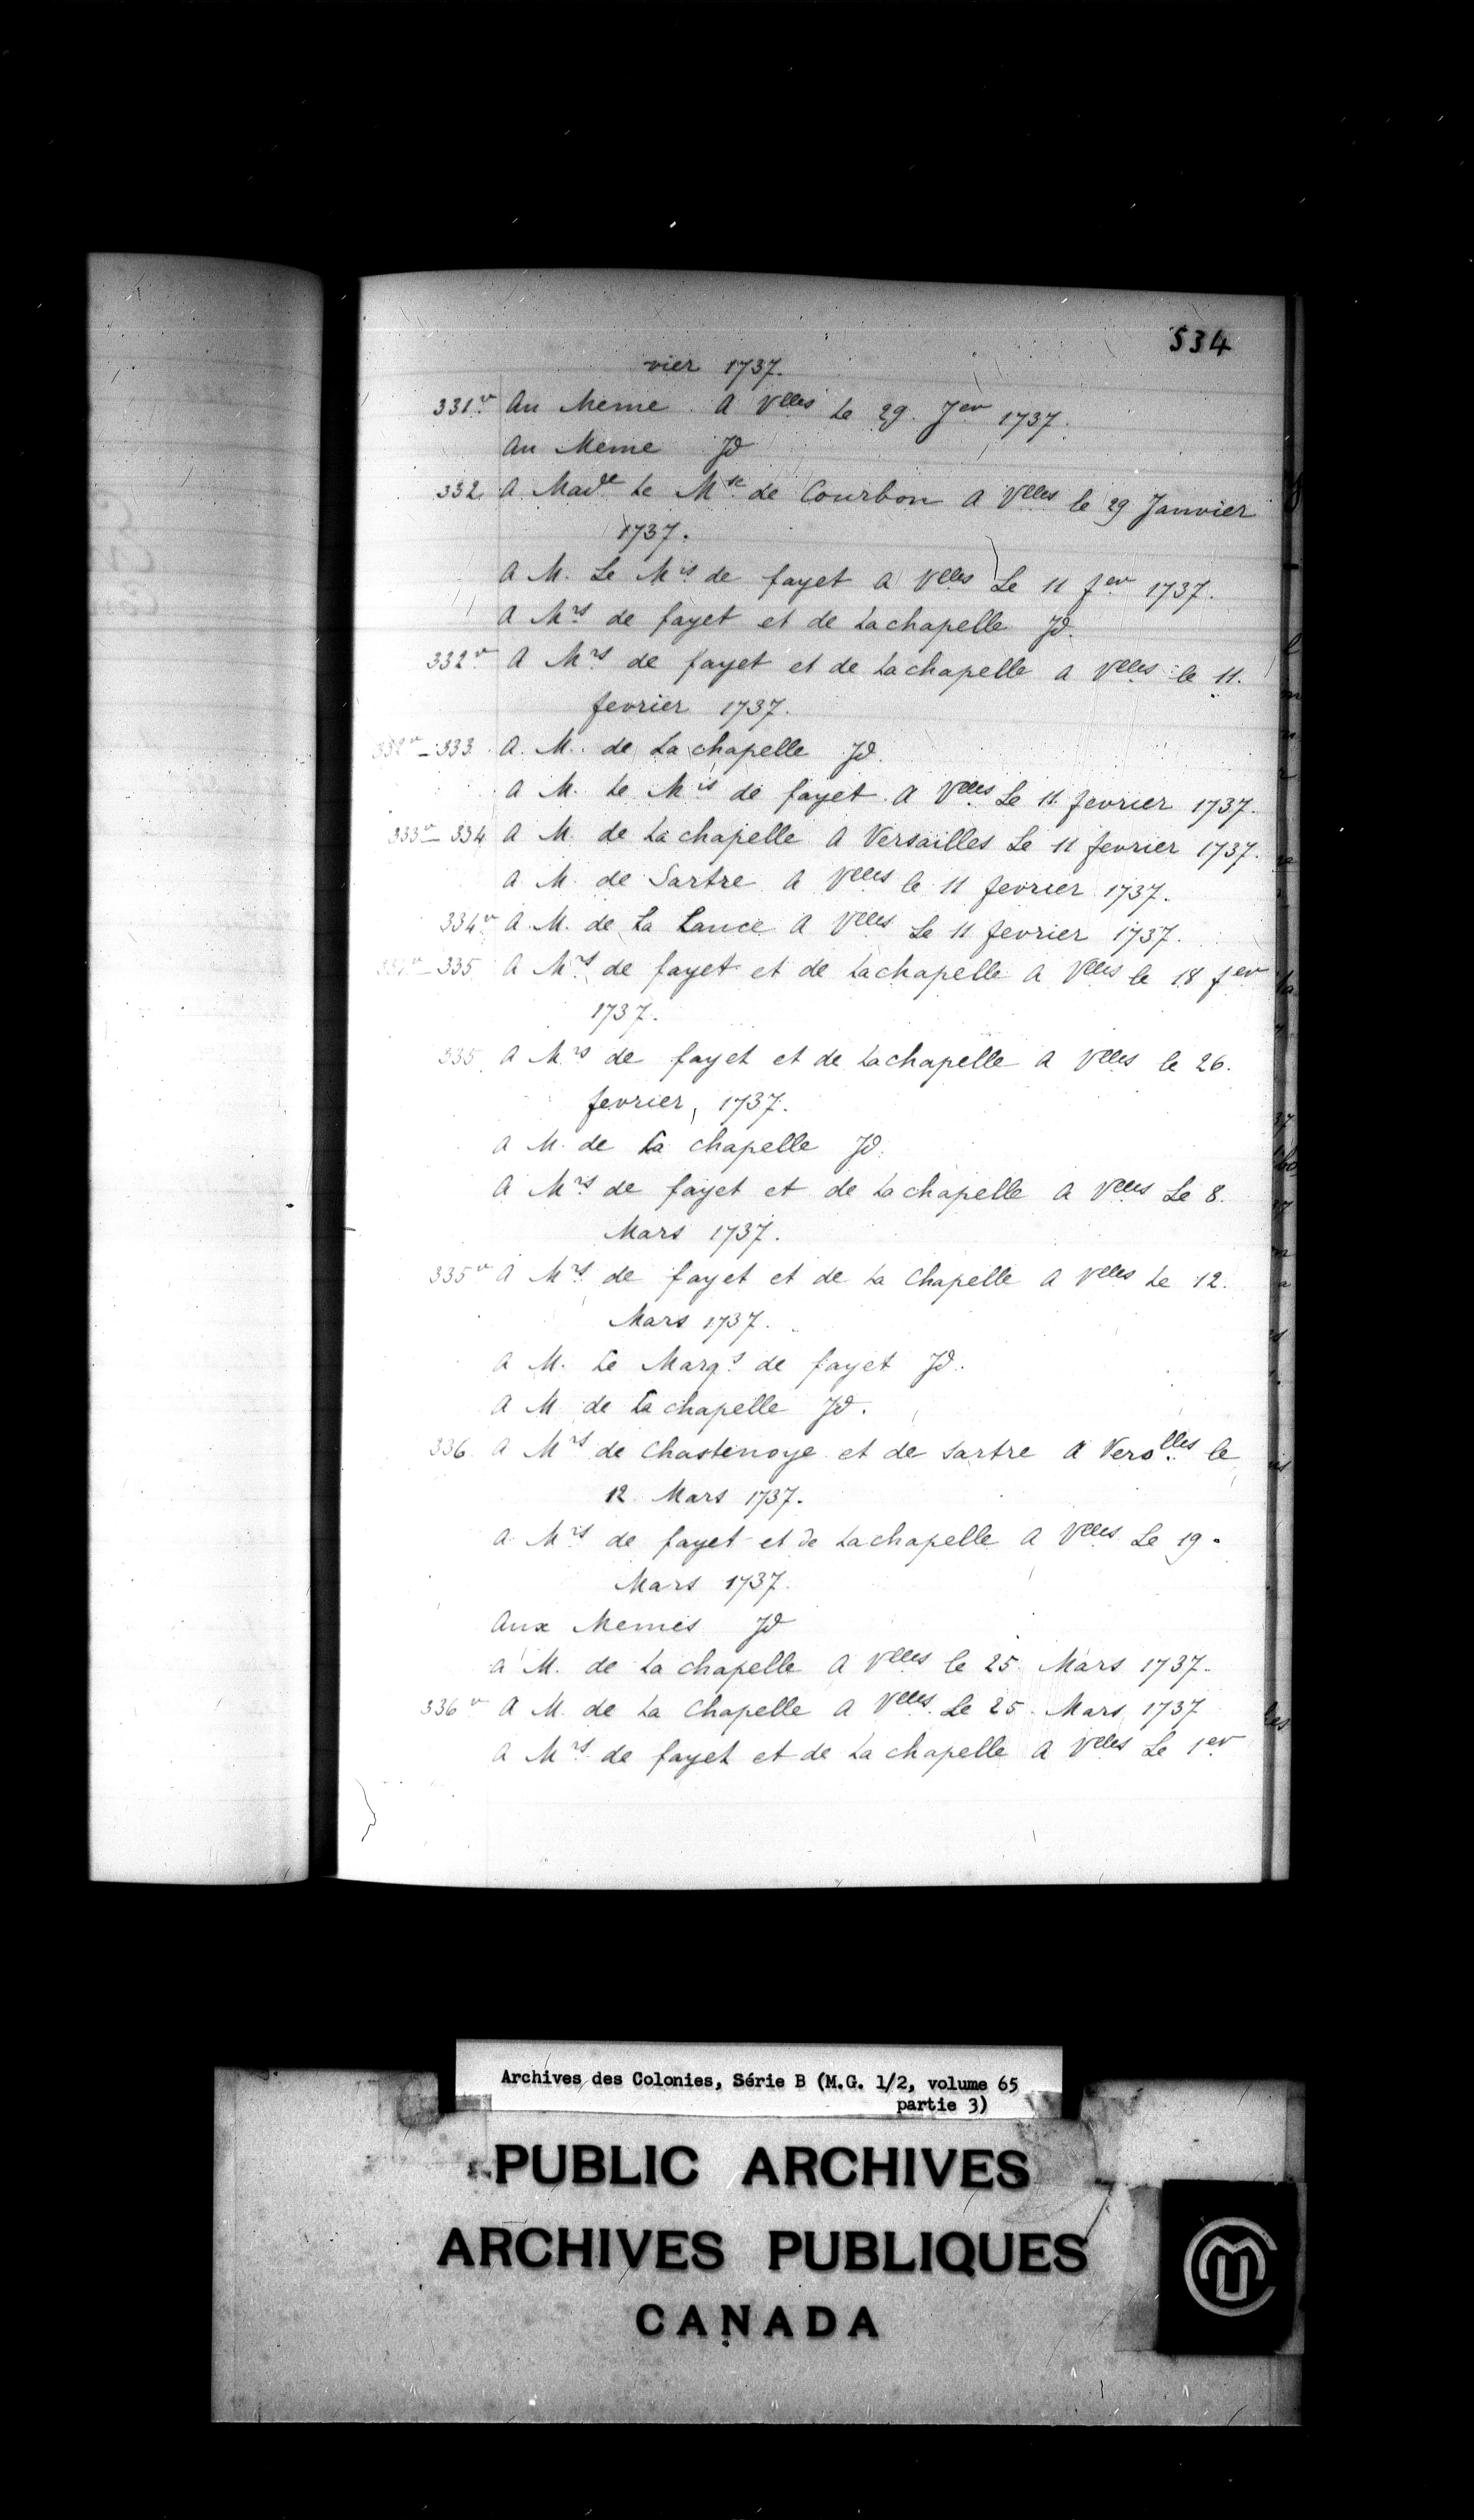 534
vier 1737.
331v Au Meme A Vlles Le 29. Jer 1737.
Au Meme Jd
332 A Made Le Mse de Courbon A Vlles le 29 Janvier
1737.
A M. Le Mis de fayet A Vlles Le 11 fer 1737.
A Mrs de fayet et de Lachapelle Jd.
332v A Mrs de fayet et de Lachapelle a Vlles le 11.
fevrier 1737.
332v - 333 A. M. de La chapelle Jd.
A M. Le Mis de fayet A Vlles Le 11 fevrier 1737.
333v - 334 A M. de La chapelle A Versailles Le 11 fevrier 1737.
A M. de Sartre A Vlles le 11 fevrier 1737.
334v A. M. de La Lance A Vlles Le 11 fevrier 1737.
334v - 335 A Mrs de fayet et de Lachapelle a Vlles le 18 fer
1737.
335 A Mrs de fayet et de Lachapelle A Vlles le 26.
fevrier, 1737.
A M. de La chapelle Jd.
A Mrs de fayet et de Lachapelle A Vlles Le 8.
Mars 1737.
335v A Mrs de fayet et de La Chapelle A Vlles Le 12.
Mars 1737.
A M. Le Marqs de fayet Jd.
A M de La chapelle Jd.
336. A Mrs de Chastenoye et de Sartre A Verslles le
12 Mars 1737.
A Mrs de fayet et de Lachapelle A Vlles Le 19.
Mars 1737.
Aux Memes Jd
a M. de La chapelle A Vlles le 25 Mars 1737.
336v A M. de La Chapelle A Vlles Le 25 Mars 1737
A Mrs de fayet et de La chapelle A Vlles Le 1er
Archives des Colonies, Série B (M.G. 1/2, volume 65
partie 3)
PUBLIC ARCHIVES
ARCHIVES PUBLIQUES
CANADA